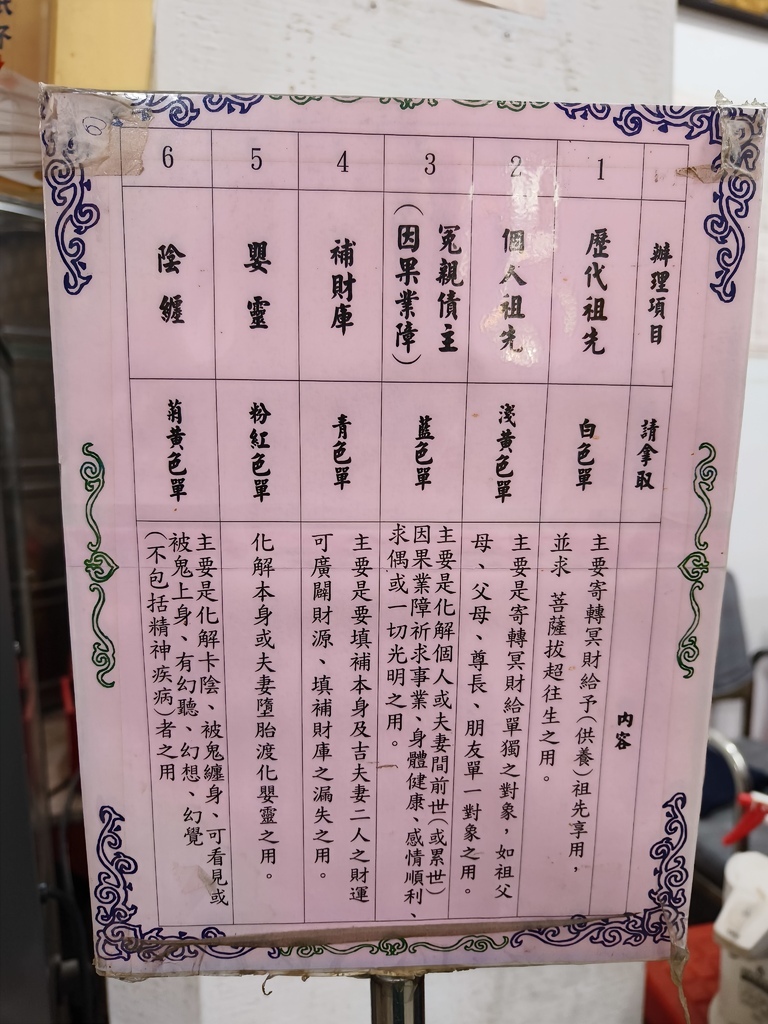 辦理項目
請拿取
內容
1
歷代祖先
白色單
主要寄轉冥財給予(供養)祖先享用，
並求 菩薩拔超往生之用。
2
個人祖先
淺黃色單
主要是寄轉冥財給單獨之對象，如祖父
母、父母、尊長、朋友單一對象之用。
3
冤親債主
(因果業障)
藍色單
主要是化解個人或夫妻間前世(或累世)
因果業障祈求事業、身體健康、感情順利、
求偶或一切光明之用。
4
補財庫
青色單
主要是要填補本身及吉夫妻二人之財運
可廣闢財源、填補財庫之漏失之用。
5
嬰靈
粉紅色單
化解本身或夫妻墮胎渡化嬰靈之用。
6
陰纏
菊黃色單
主要是化解卡陰、被鬼纏身、可看見或
被鬼上身、有幻聽、幻想、幻覺
(不包括精神疾病)者之用